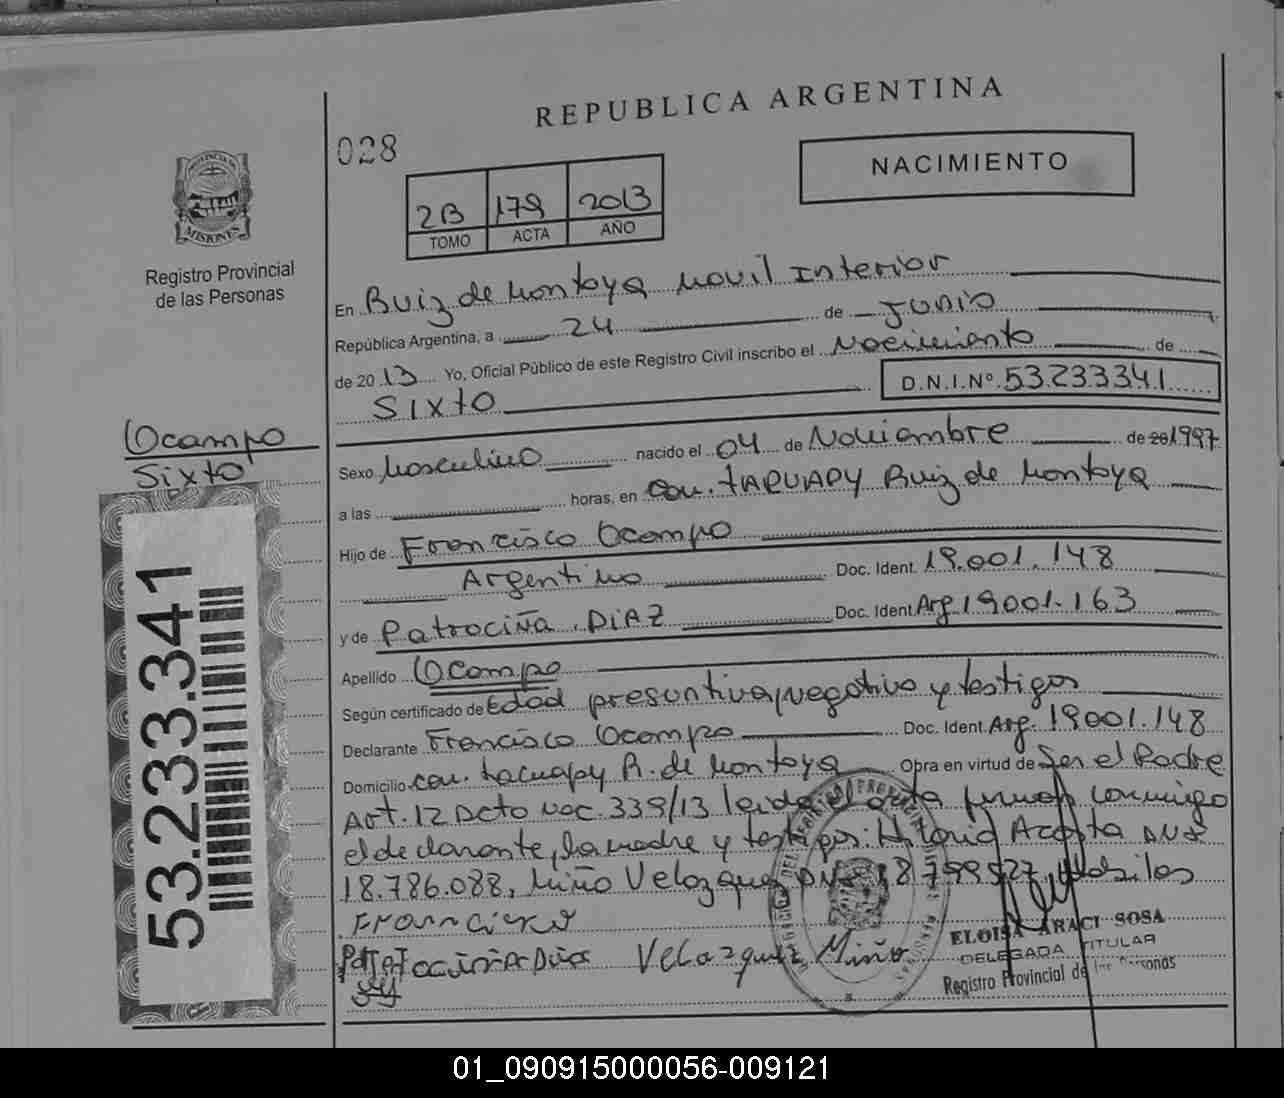 REPUBLICA ARGENTINA
028
NACIMIENTO
2B 179 2013
TOMO ACTA AÑO
MISIONES
Registro Provincial
de las Personas
En Ruiz de Montoya Movil Interior
República Argentina, a 24 de Junio
de 2013 Yo, Oficial Público de este Registro Civil inscribo el Nacimiento de
Sixto D.N.I.Nº 53.233341
Ocampo
Sixto
Sexo Masculino nacido el 04 de Noviembre de 20 1997
a las horas, en Com. TARUAPY Ruiz de Montoya
Hijo de Francisco Ocampo
Argentino Doc. Ident. 19.001.148
y de Patrociña DIAZ Doc. Ident Arg. 19001.163
Apellido Ocampo
Según certificado de Edad presuntiva, negativo y testigos
Declarante Francisco Ocampo Doc. Ident. Arg. 19001.148
Domicilio com. R. de Montoya Obra en virtud de Ser el Padre
Art. 12 Dcto Nac. 339/13 leida el acta firman conmigo
el declarante, la madre y testigos: Acosta DNI
18.786.088, Miño Velazquez
Francisco
Velazquez Miño
53.233.341
ELOISA ARACI SOSA
DELEGADA TITULAR
Registro Provincial de las Personas
01_090915000056-009121